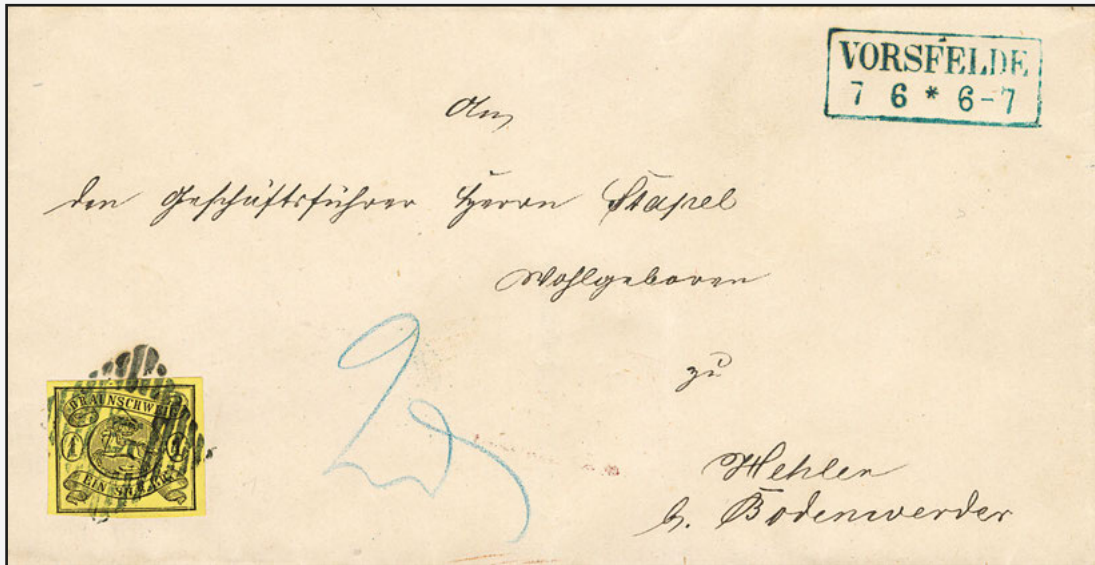 VORSFELDE
7 6 * 6-7
An
den Geschäftsführer Herrn Stapel
Wohlgeboren
zu
Hehlen
b. Bodenwerder
BRAUNSCHWEIG
1 1
EIN SILBERGR